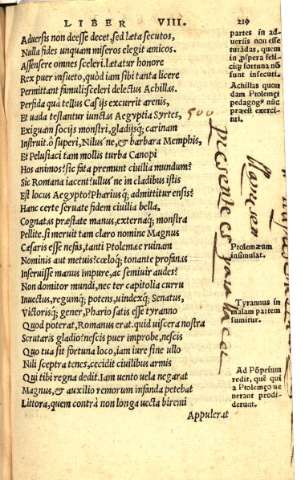 LIBER VIII.
219
Aduersis non deesse decet, sed læta secutos,
Nulla fides unquam miseros elegit amicos.
Assensere omnes sceleri. lætatur honore
Rex puer insueto, quòd iam sibi tanta licere
Permittant famuli: sceleri delectus Achillas.
Perfida quà tellus Casijs excurrit arenis,
Et uada testantur iunctas Aegyptia Syrtes,
Exiguam socijs monstri, gladijsq; carinam
Instruit. ô superi, Nilus'ne, & barbara Memphis,
Et Pelusiaci tam mollis turba Canopi
Hos animos? sic fata premunt ciuilia mundum?
Sic Romana iacent? ullus'ne in cladibus istis
Est locus Aegypto? Pharius'q; admittitur ensis?
Hanc certe seruate fidem ciuilia bella,
Cognatas præstate manus, externaq; monstra
Pellite. si meruit tam claro nomine Magnus
Cæsaris esse nefas, tanti Ptolemæe ruinam
Nominis haut metuis? cœloq; tonante profanas
Inseruisse manus impure, ac semiuir audes?
Non domitor mundi, nec ter capitolia curru
Inuectus, regumq; potens, uindexq; Senatus,
Victorisq; gener, Phario satis esse tyranno
Quod poterat, Romanus erat. quid uiscera nostra
Scrutaris gladio? nescis puer improbe, nescis
Quo tua sit fortuna loco, iam iure sine ullo
Nili sceptra tenes, cecidit ciuilibus armis
Qui tibi regna dedit. Iam uento uela negarat
Magnus, & auxilio remorum infanda petebat
Littora, quem contrà non longa uecta biremi
Appulerat
partes in ad
uersis non esse
turādas, quem
in ꝓspera feli-
citq; fortuna nō
sunt insecuti.
Achillas quos
dam Ptolemęi
pedagog⁹ nuc
præest exerci-
tui.
500
Ptolemæum
insimulat.
Tyrannus in
malam partem
sumitur.
Ad Pōpeium
redit, quē qui
a Ptolemęo ue
nerant prodi-
derunt.